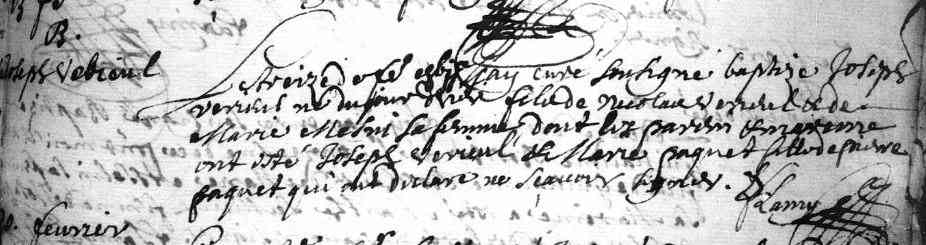 B.
Joseph Verieul
Le treize de ce j'ay curé soussigné baptize Joseph
verieul né du jour d'hier fils de Nicolas verieul et de
Marie Mesni sa femme, dont les parein et mareinne
ont esté Joseph Verieul et Marie paquet fille de
paquet qui ont declare ne scavoir signer. Lamy
fevrier